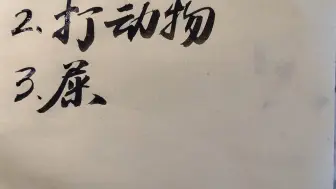 2.打动物
3.屎